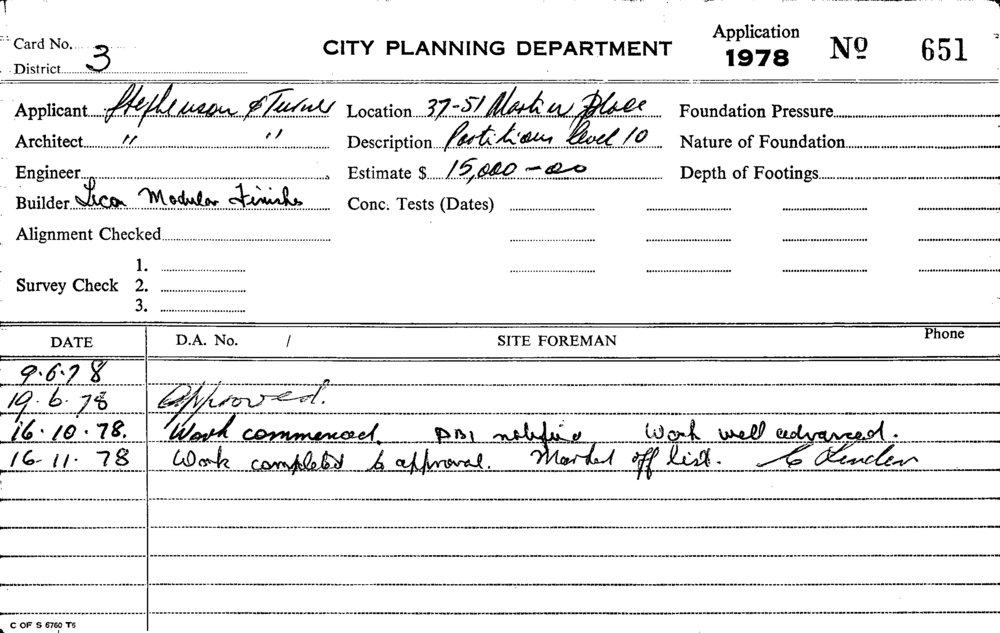 Card No.
District 3
CITY PLANNING DEPARTMENT
Application 1978 Nº 651
Applicant Stephenson & Turner Location 37-51 Martin Place Foundation Pressure
Architect " " Description Partitions level 10 Nature of Foundation
Engineer Estimate $ 15,000-00 Depth of Footings
Builder Modular Finishes Conc. Tests (Dates)
Alignment Checked
1.
Survey Check 2.
3.
DATE D.A. No. / SITE FOREMAN Phone
9.6.78
19.6.78 Approved.
16.10.78. Work commenced. DBI notified Work well advanced.
16.11.78 Work completed to approval. Marked off list.
C OF S 6760 T5